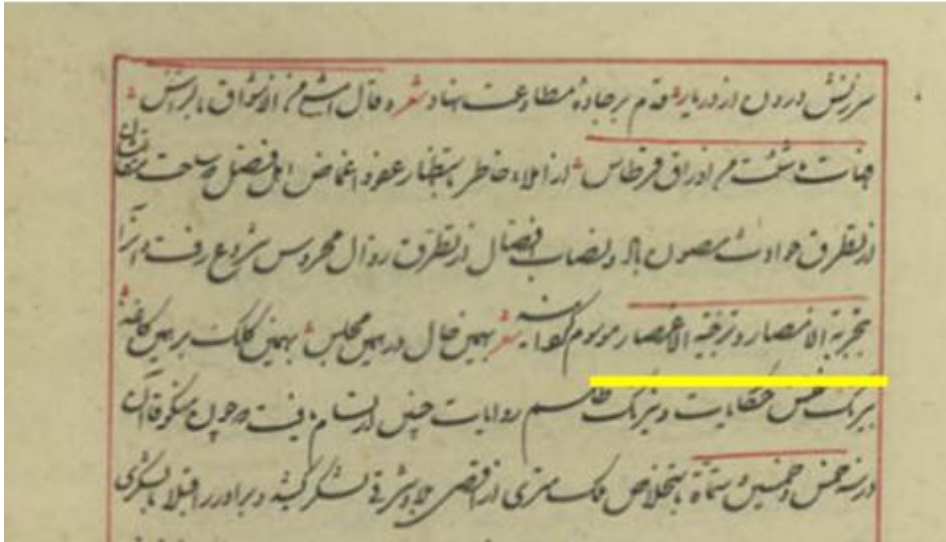 سرزنش درون از در یار قدم بر جاده مطاوعت نهاد شعر و قال اشع من الاشواق
هنات من اوراق قرطاس از املاء خاطر باستظهار عفو و اغماض اهل فضل ساحت
از تطرق حوادث مصون باد و نصاب افضال از تطرق زوال محروس شروع رفت و آنرا
تجزیة الامصار و تزجیة الاعصار موسوم گردانید شعر بهمین حال در همین مجلس بهمین کلک بر همین کاغذ
نیرنگ نقش حکایات و نیرنگ طلسم روایات چنین ارتسام یافت چون منکوقاآن
در سنه خمس و خمسین ستمائة باستخلاص از اقصی بلاد شرقی لشکر کشید و برادر را قبلا با لشکری